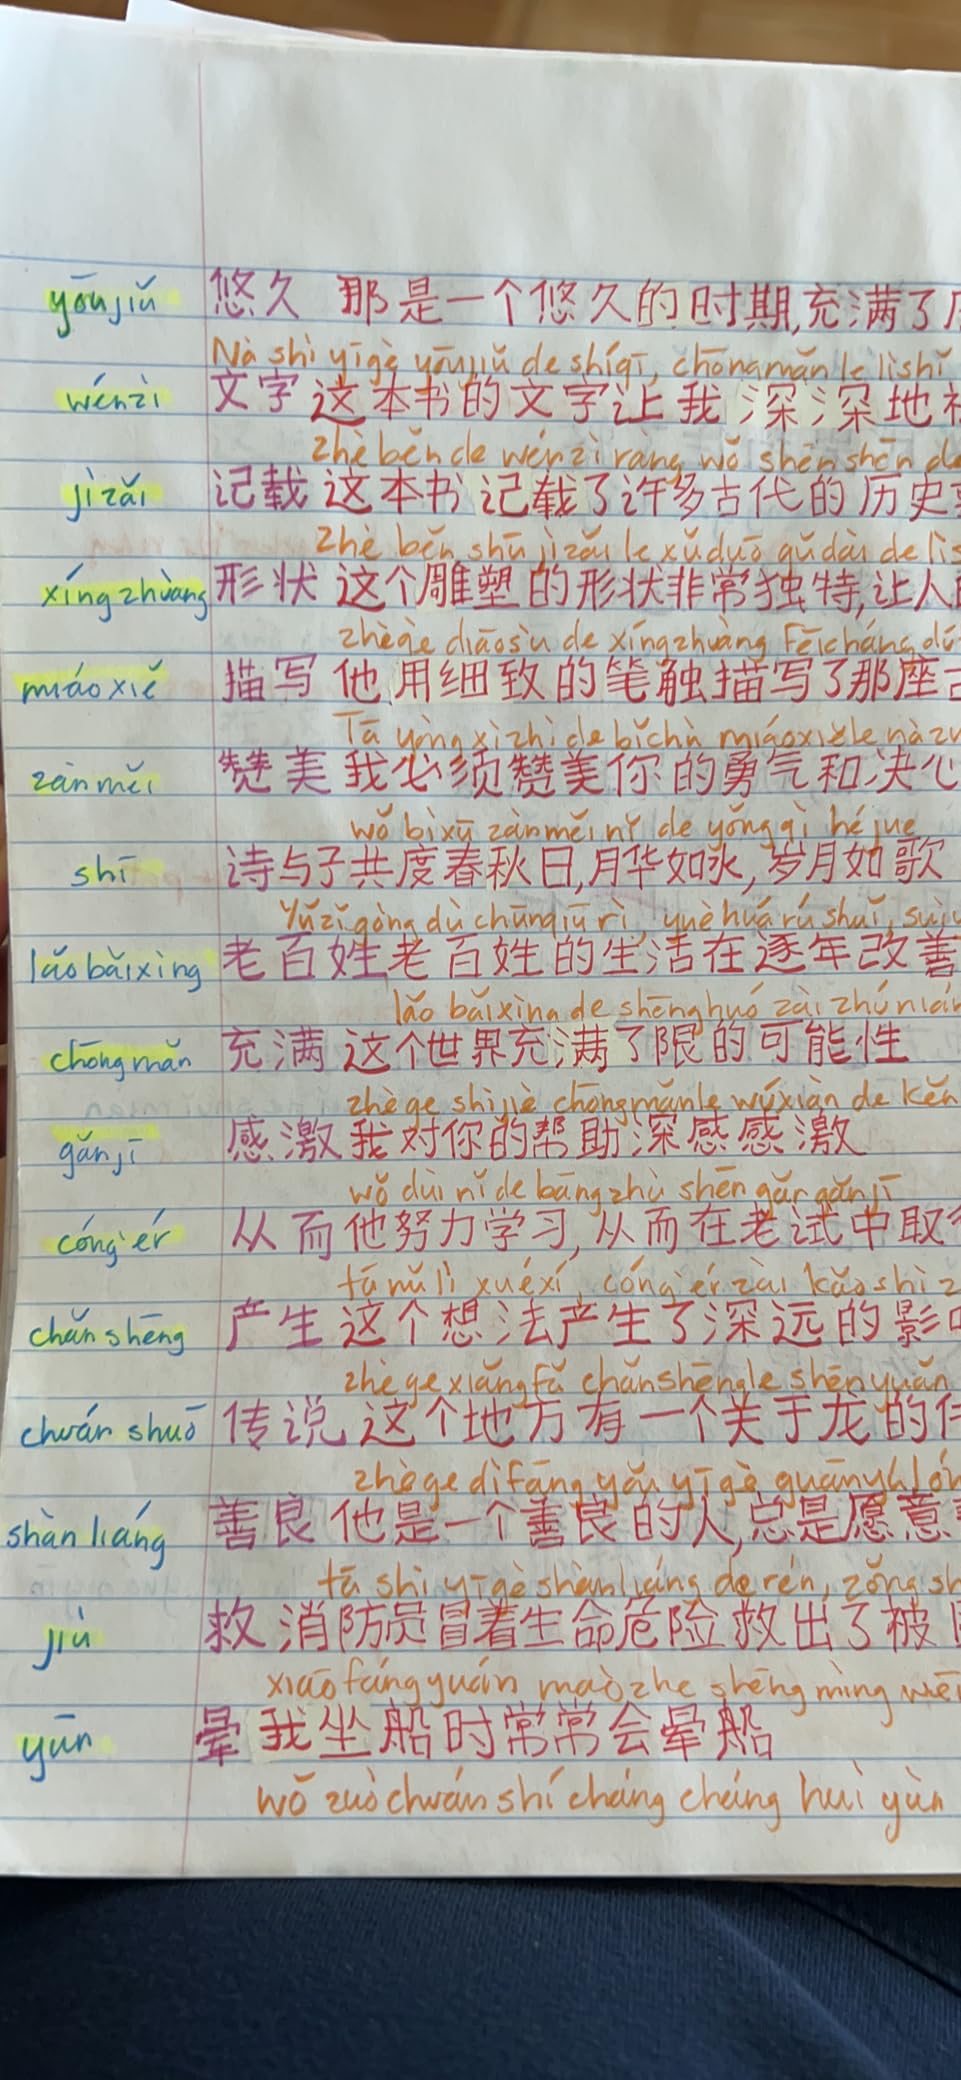 yōujiǔ 悠久 那是一个悠久的时期,充满了
Nà shì yīgè yōujiǔ de shígī, chōngmǎn le lìshǐ
wénzì 文字 这本书的文字让我深深地
zhè běn de wénzì ràng wǒ shēnshēn de
jìzǎi 记载 这本书记载了许多古代的历史
zhè běn shū jìzǎi le xǔduō gǔdài de lìs
xíngzhuàng 形状 这个雕塑的形状非常独特,让人
zhège diāosù de xíngzhuàng fēicháng dú
miáoxiě 描写 他用细致的笔触描写了那座古
Tā yòng xìzhì de bǐchù miáoxiě le nàzu
zànměi 赞美 我必须赞美你的勇气和决心
wǒ bìxū zànměi nǐ de yǒng qì hé jue
shī 诗 与子共度春秋日,月华如水,岁月如歌
Yǔzǐ gòng dù chūnqiū rì, yuè huá rú shuǐ, suìyu
lǎobǎixìng 老百姓 老百姓的生活在逐年改善
lǎo bǎixìng de shēnghuó zài zhúnián
chōngmǎn 充满 这个世界充满了限的可能性
zhège shìjiè chōngmǎnle wúxiàn de kěn
gǎnjī 感激 我对你的帮助深感感激
wǒ duì nǐ de bāngzhù shēn gǎn gǎnjī
cóng'ér 从而 他努力学习,从而在老试中取
tā nǔlì xuéxí, cóng'ér zài kǎoshì z
chǎnshēng 产生 这个想法产生了深远的影
zhège xiǎngfǎ chǎnshēngle shēnyuǎn
chuán shuō 传说 这个地方有一个关于龙的
zhège dìfāng yǒu yīgè guānyú lón
shànliáng 善良 他是一个善良的人,总是愿意
tā shì yīgè shànliáng de rén, zǒng sh
jiù 救 消防员冒着生命危险救出了被
xiāofángyuán maòzhe shēngmìng wēi
yūn 晕 我坐船时常常会晕船
wǒ zuò chuán shí cháng cháng huì yùn